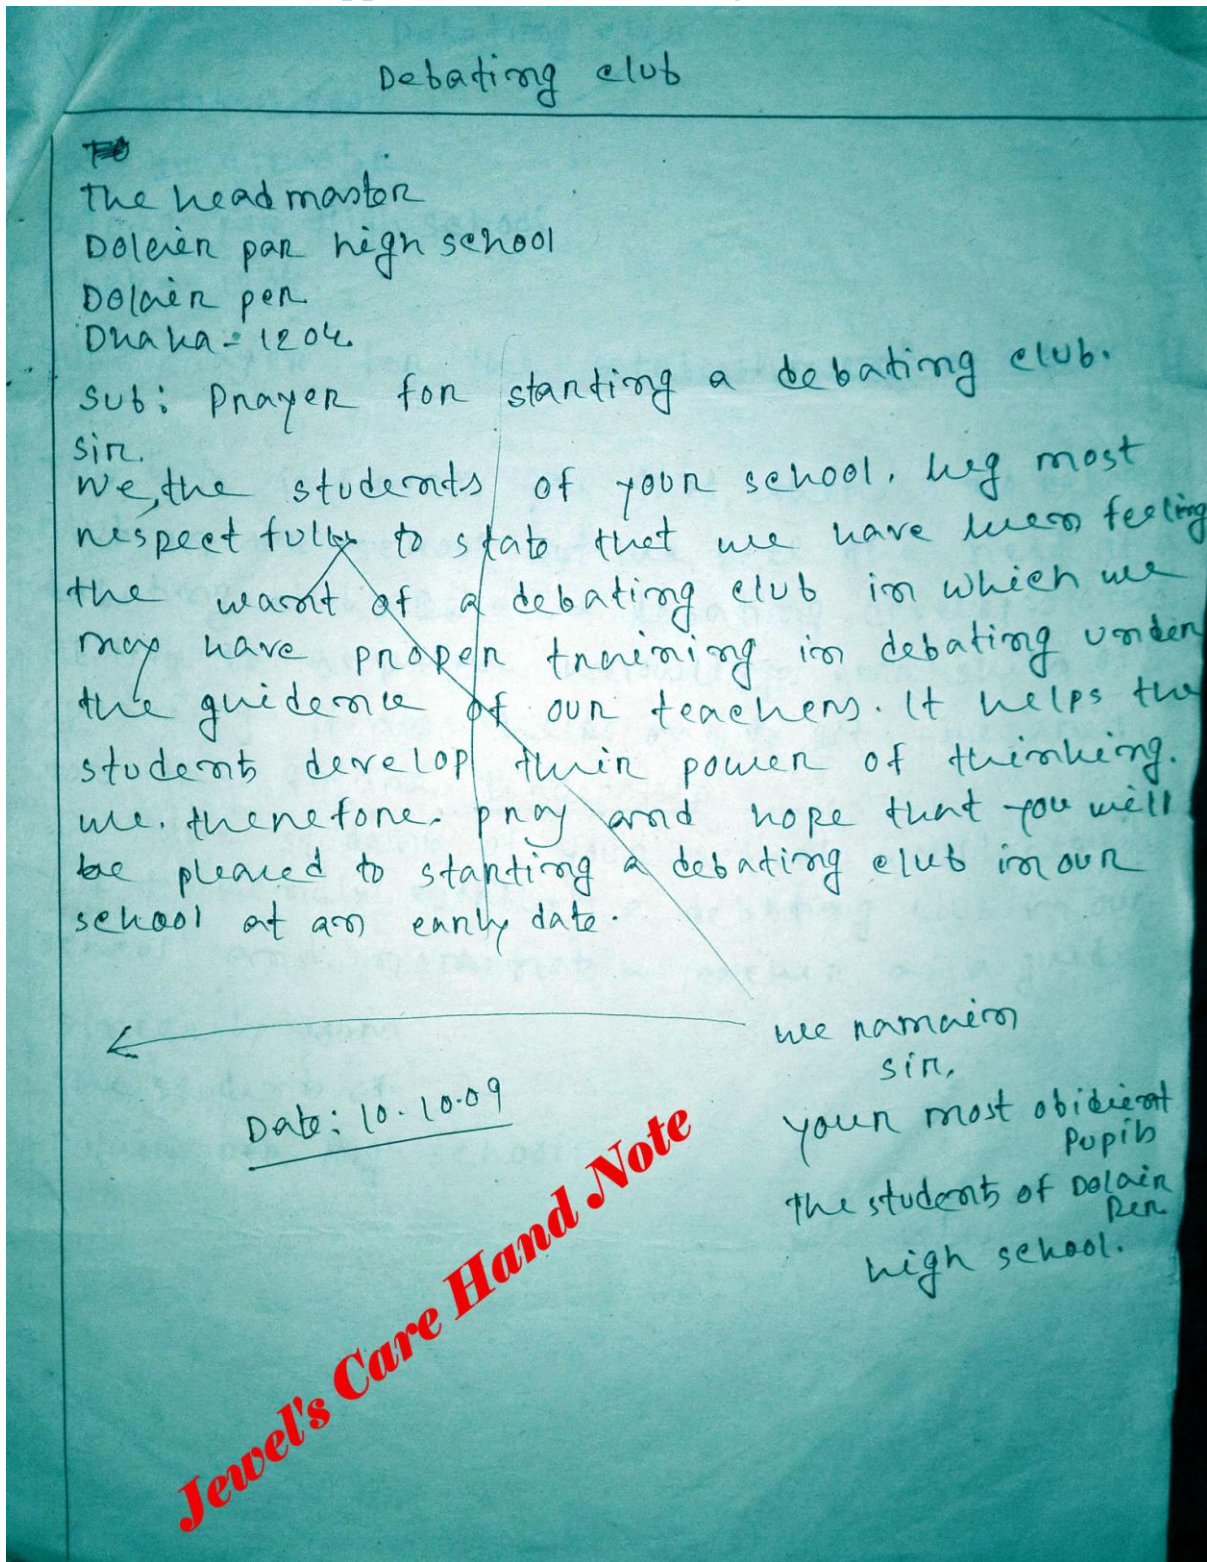 Debating club
To
The head master
Dolairr par high school
Dolair per
Dhaka - 1204.
Sub: Prayer for starting a debating club.
Sir.
We, the students of your school. beg most
respect fully to state that we have been feeling
the want of a debating club in which we
may have proper training in debating under
the guidence of our teachers. It helps the
students develop their power of thinking.
we. therefore. pray and hope that you will
be pleaced to starting a debating club in our
school at an early date.
we ramain
sir,
Date: 10.10.09
your most obidient
Pupils
The students of Dolair
Per
high school.
Jewel's Care Hand Note